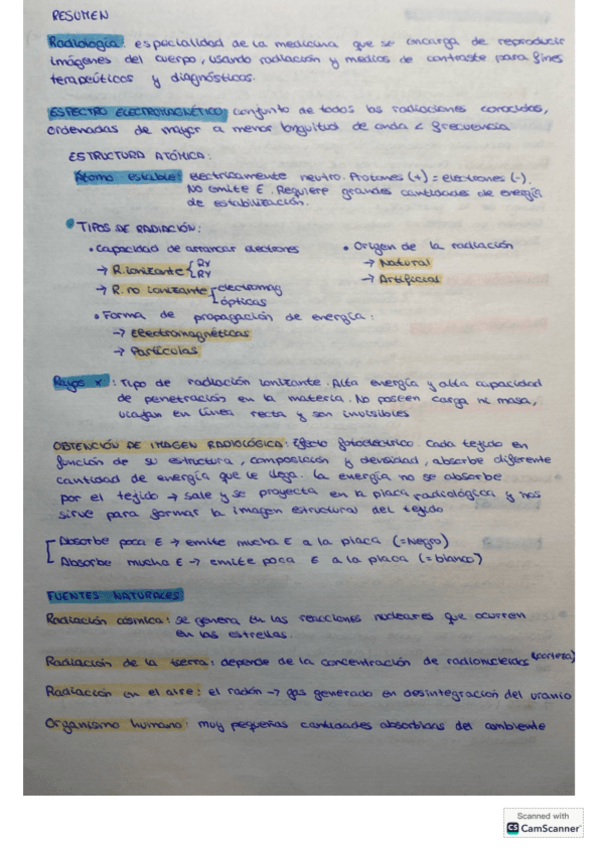 RESUMEN
Radiología: especialidad de la medicina que se encarga de reproducir
imágenes del cuerpo, usando radiación y medios de contraste para fines
terapéuticos y diagnósticos.
ESPECTRO ELECTROMAGNÉTICO: conjunto de todas las radiaciones conocidas,
ordenadas de mayor a menor longuitud de onda < frecuencia
ESTRUCTURA ATÓMICA:
Átomo estable: Electricamente neutro. Protones (+) = electrones (-).
No emite E. Requiere grandes cantidades de energía
de estabilización.
TIPOS DE RADIACIÓN:
• Capacidad de arrancar electrones
→ R. ionizante
→ R. no ionizante electromag
ópticas
• Forma de propagación de energía:
→ Electromagnéticas
→ Partículas
• Origen de la radiación
→ Natural
→ Artificial
Rayos x: Tipo de radiación ionizante. Alta energía y alta capacidad
de penetración en la materia. No poseen carga ni masa,
viajan en línea recta y son invisibles
OBTENCIÓN DE IMAGEN RADIOLÓGICA: Efecto fotoeléctrico. Cada tejido en
función de su estructura, composición y densidad, absorbe diferente
cantidad de energía que le llega. La energía no se absorbe
por el tejido → sale y se proyecta en la placa radiológica y nos
sirve para formar la imagen estructural del tejido
Absorbe poca E → emite mucha E a la placa (=Negro)
Absorbe mucha E → emite poca E a la placa (=blanco)
FUENTES NATURALES
Radiación cósmica: se genera en las reacciones nucleares que ocurren
en las estrellas.
Radiación de la tierra: depende de la concentración de radionúcleidos (corteza)
Radiación en el aire: el radón → gas generado en desintegración del uranio
Organismo humano: muy pequeñas cantidades del ambiente
Scanned with
CS CamScanner